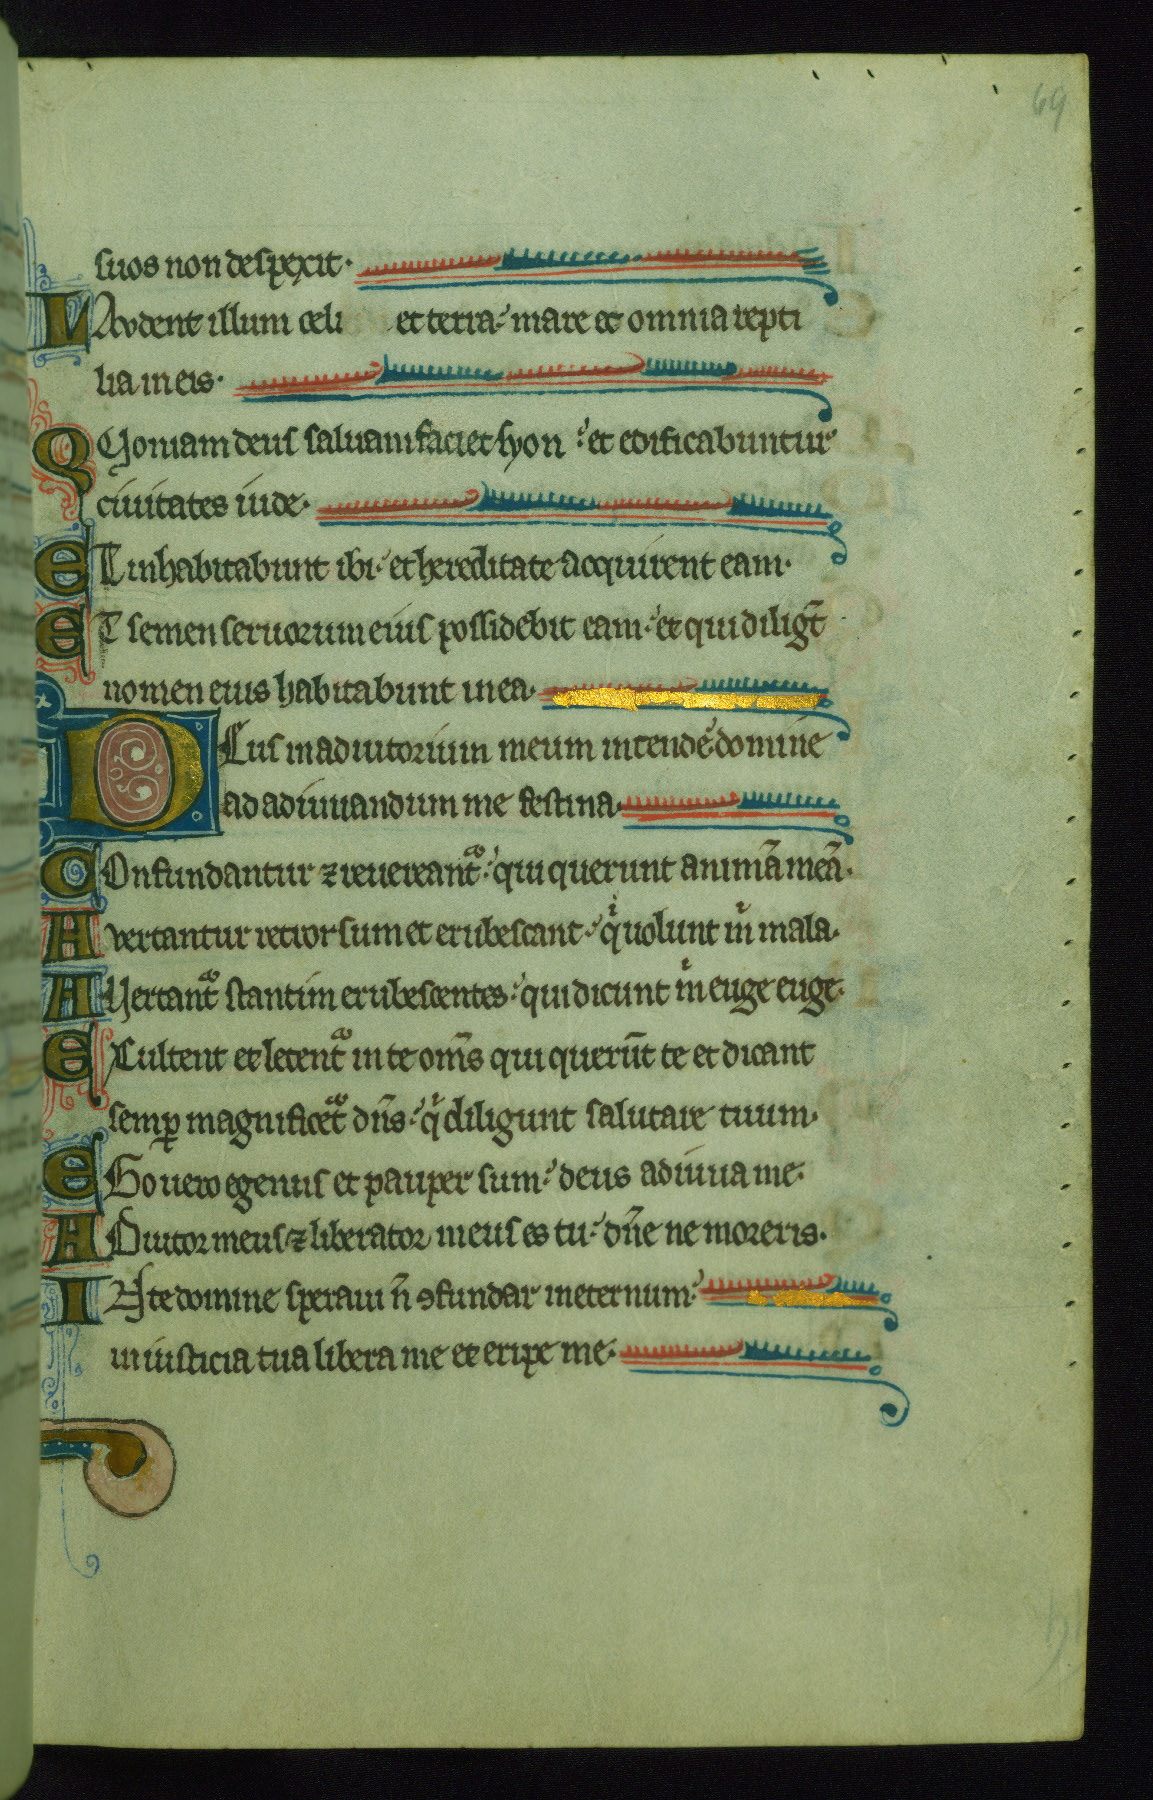 69
suos non despexit.
LAudent illum celi et terra: mare et omnia repti
lia in eis.
QUoniam deus saluam faciet syon: et edificabuntur
ciuitates iude.
ET inhabitabunt ibi: et hereditate acquirent eam.
ET semen seruorum eius possidebit eam: et qui diligt̄
nomen eius habitabunt in ea.
DEus in adiutorium meum intende: domine
ad adiuuandum me festina.
COnfundantur ⁊ reuereant᷑: qui querunt animā meā.
AVertantur retrorsum et erubescant: qͥ uolunt m̄ mala.
AVertant᷑ statim erubescentes: qui dicunt mͥ euge euge.
EXultent et letent᷑ in te om̄s qui querūt te et dicant
semꝑ magnificet᷑ dn̄s: qͥ diligunt salutare tuum.
EGo uero egenus et pauper sum: deus adiuua me.
ADiutor meus ⁊ liberator meus es tu: dn̄e ne moreris.
IN te domine speraui n̄ ꝯfundar in eternum:
in iusticia tua libera me et eripe me: